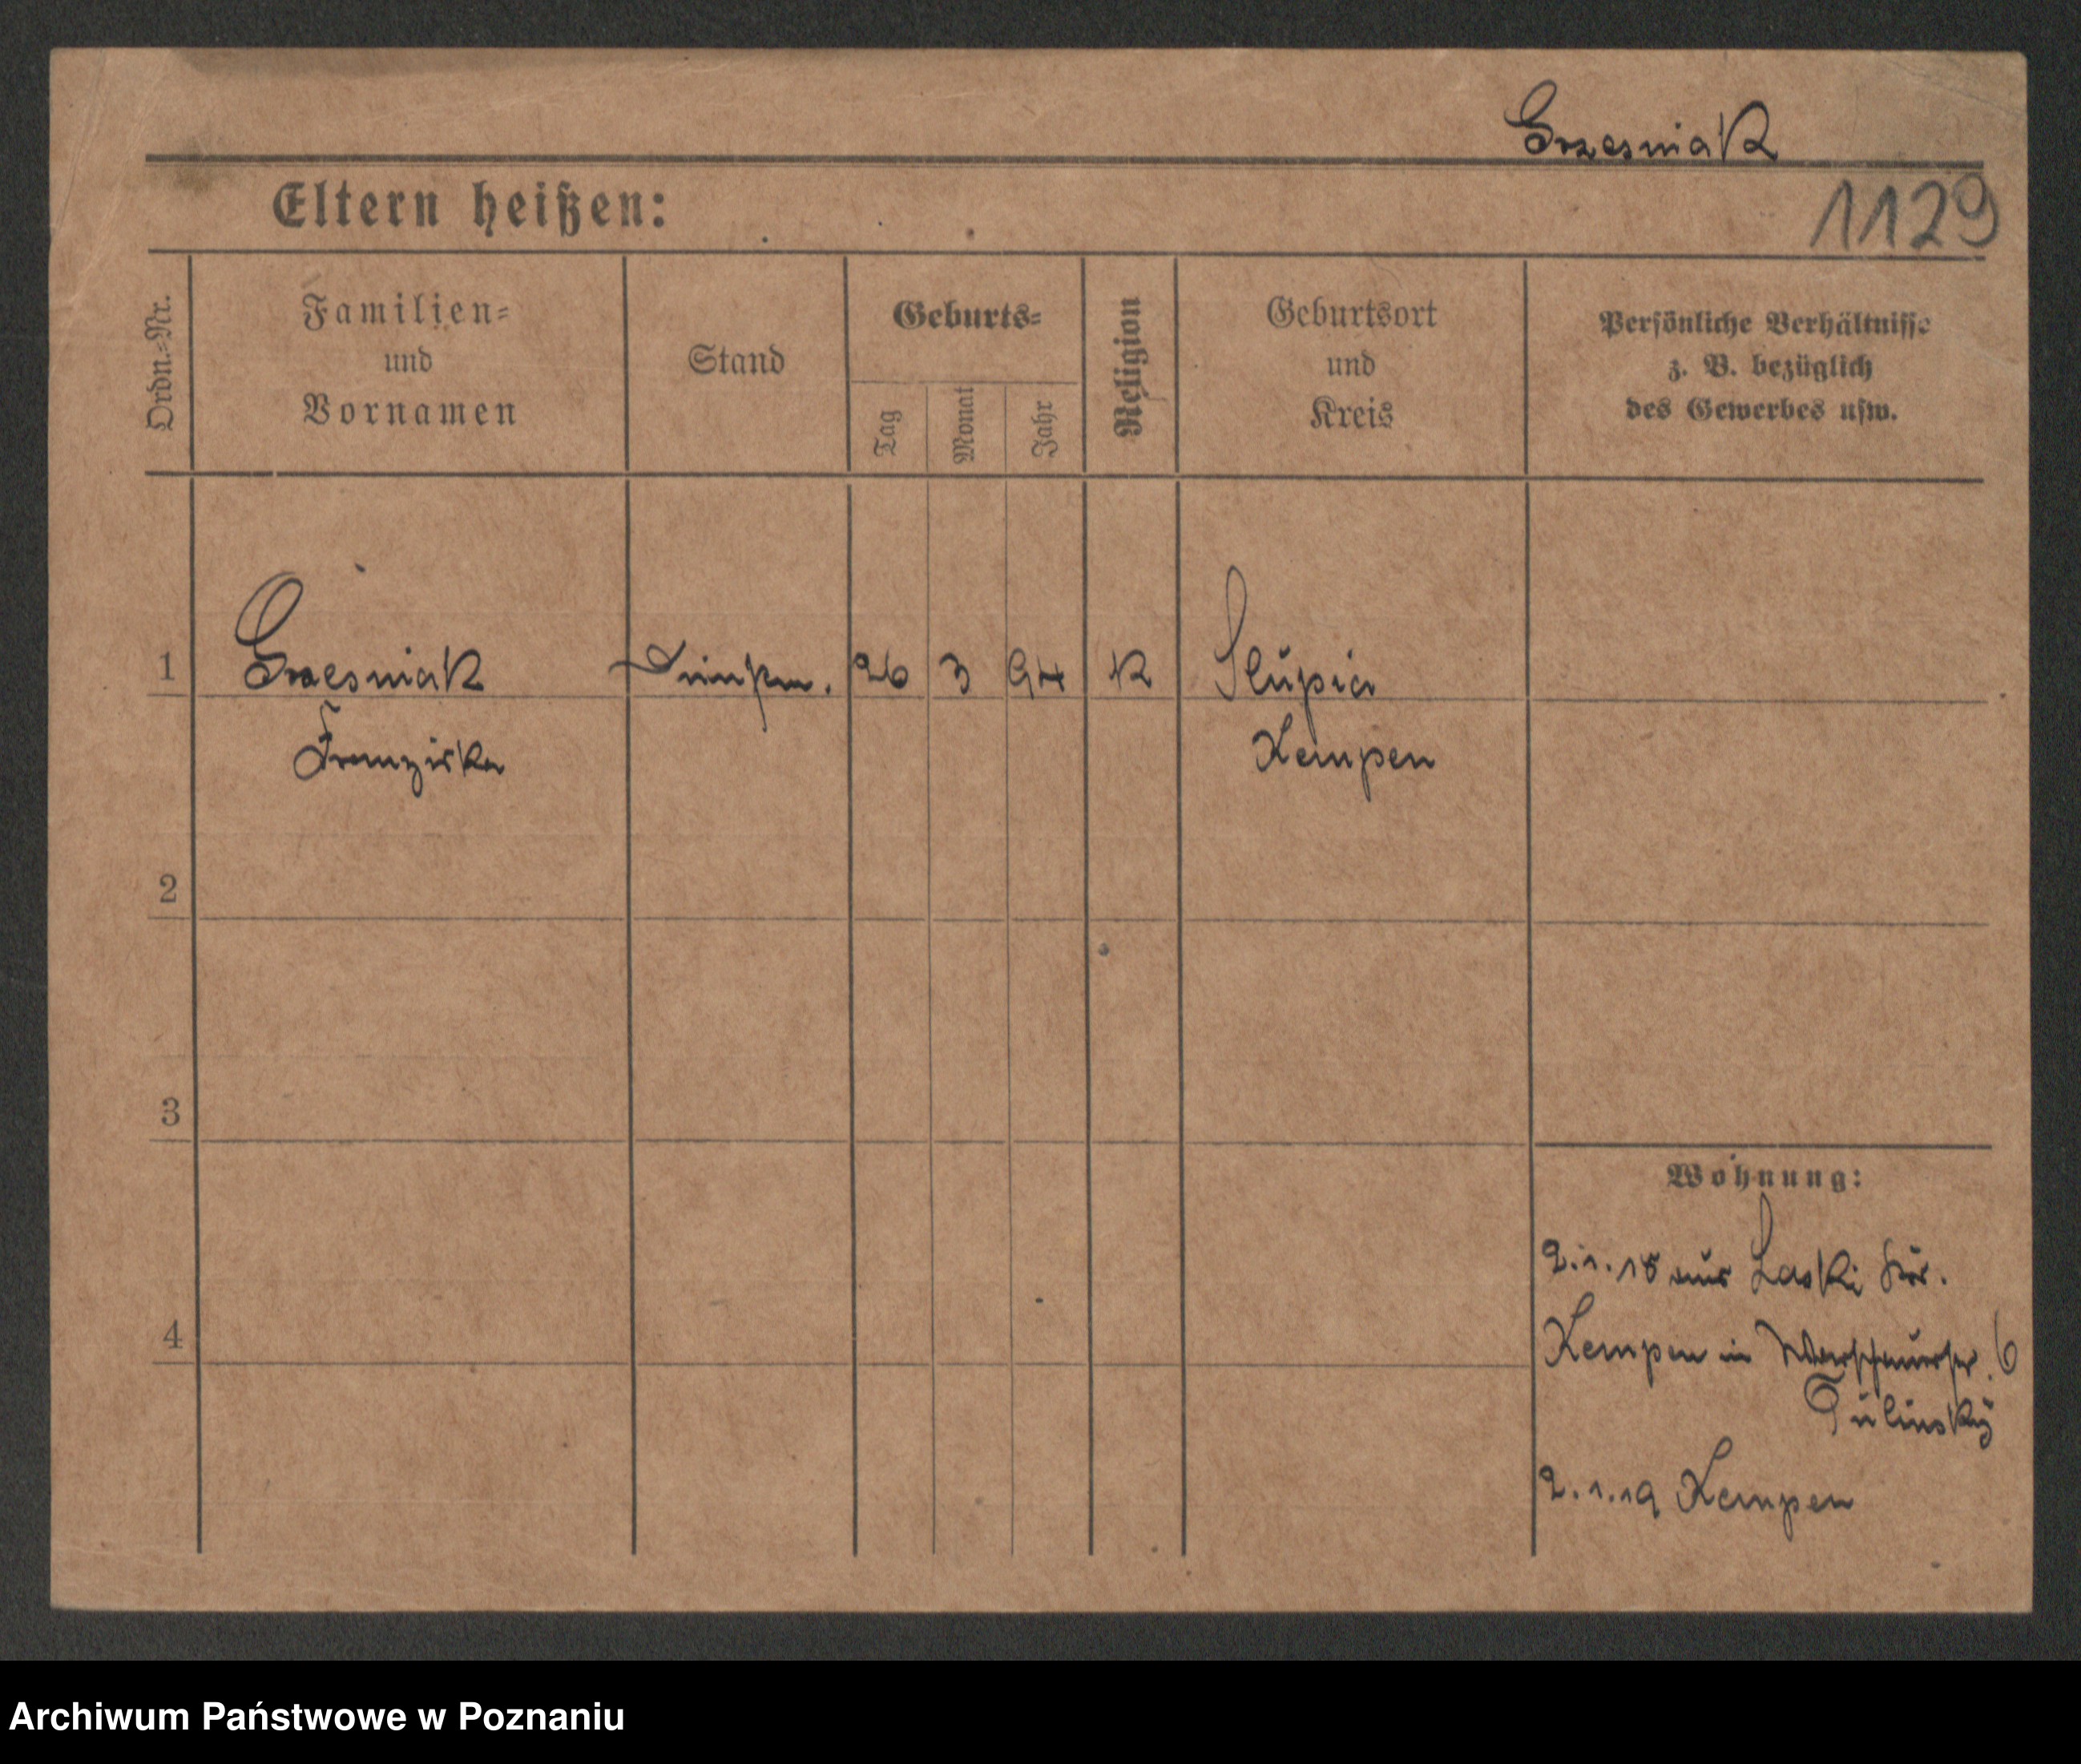 Grzesniak
Eltern heißen:
1129
Ordn.-Nr.
Familien-
und
Vornamen
Stand
Geburts-
Tag
Monat
Jahr
Religion
Geburtsort
und
Kreis
Persönliche Verhältnisse
z. B. bezüglich
des Gewerbes usw.
1 Grzesniak 26 3 94 K Slupia
Franziska Kempen
2
3
Wohnung:
2.1.18 aus Laski Kr.
4 Kempen in Warschauerstr. 6
Tulinsky
2.1.19 Kempen
Archiwum Państwowe w Poznaniu